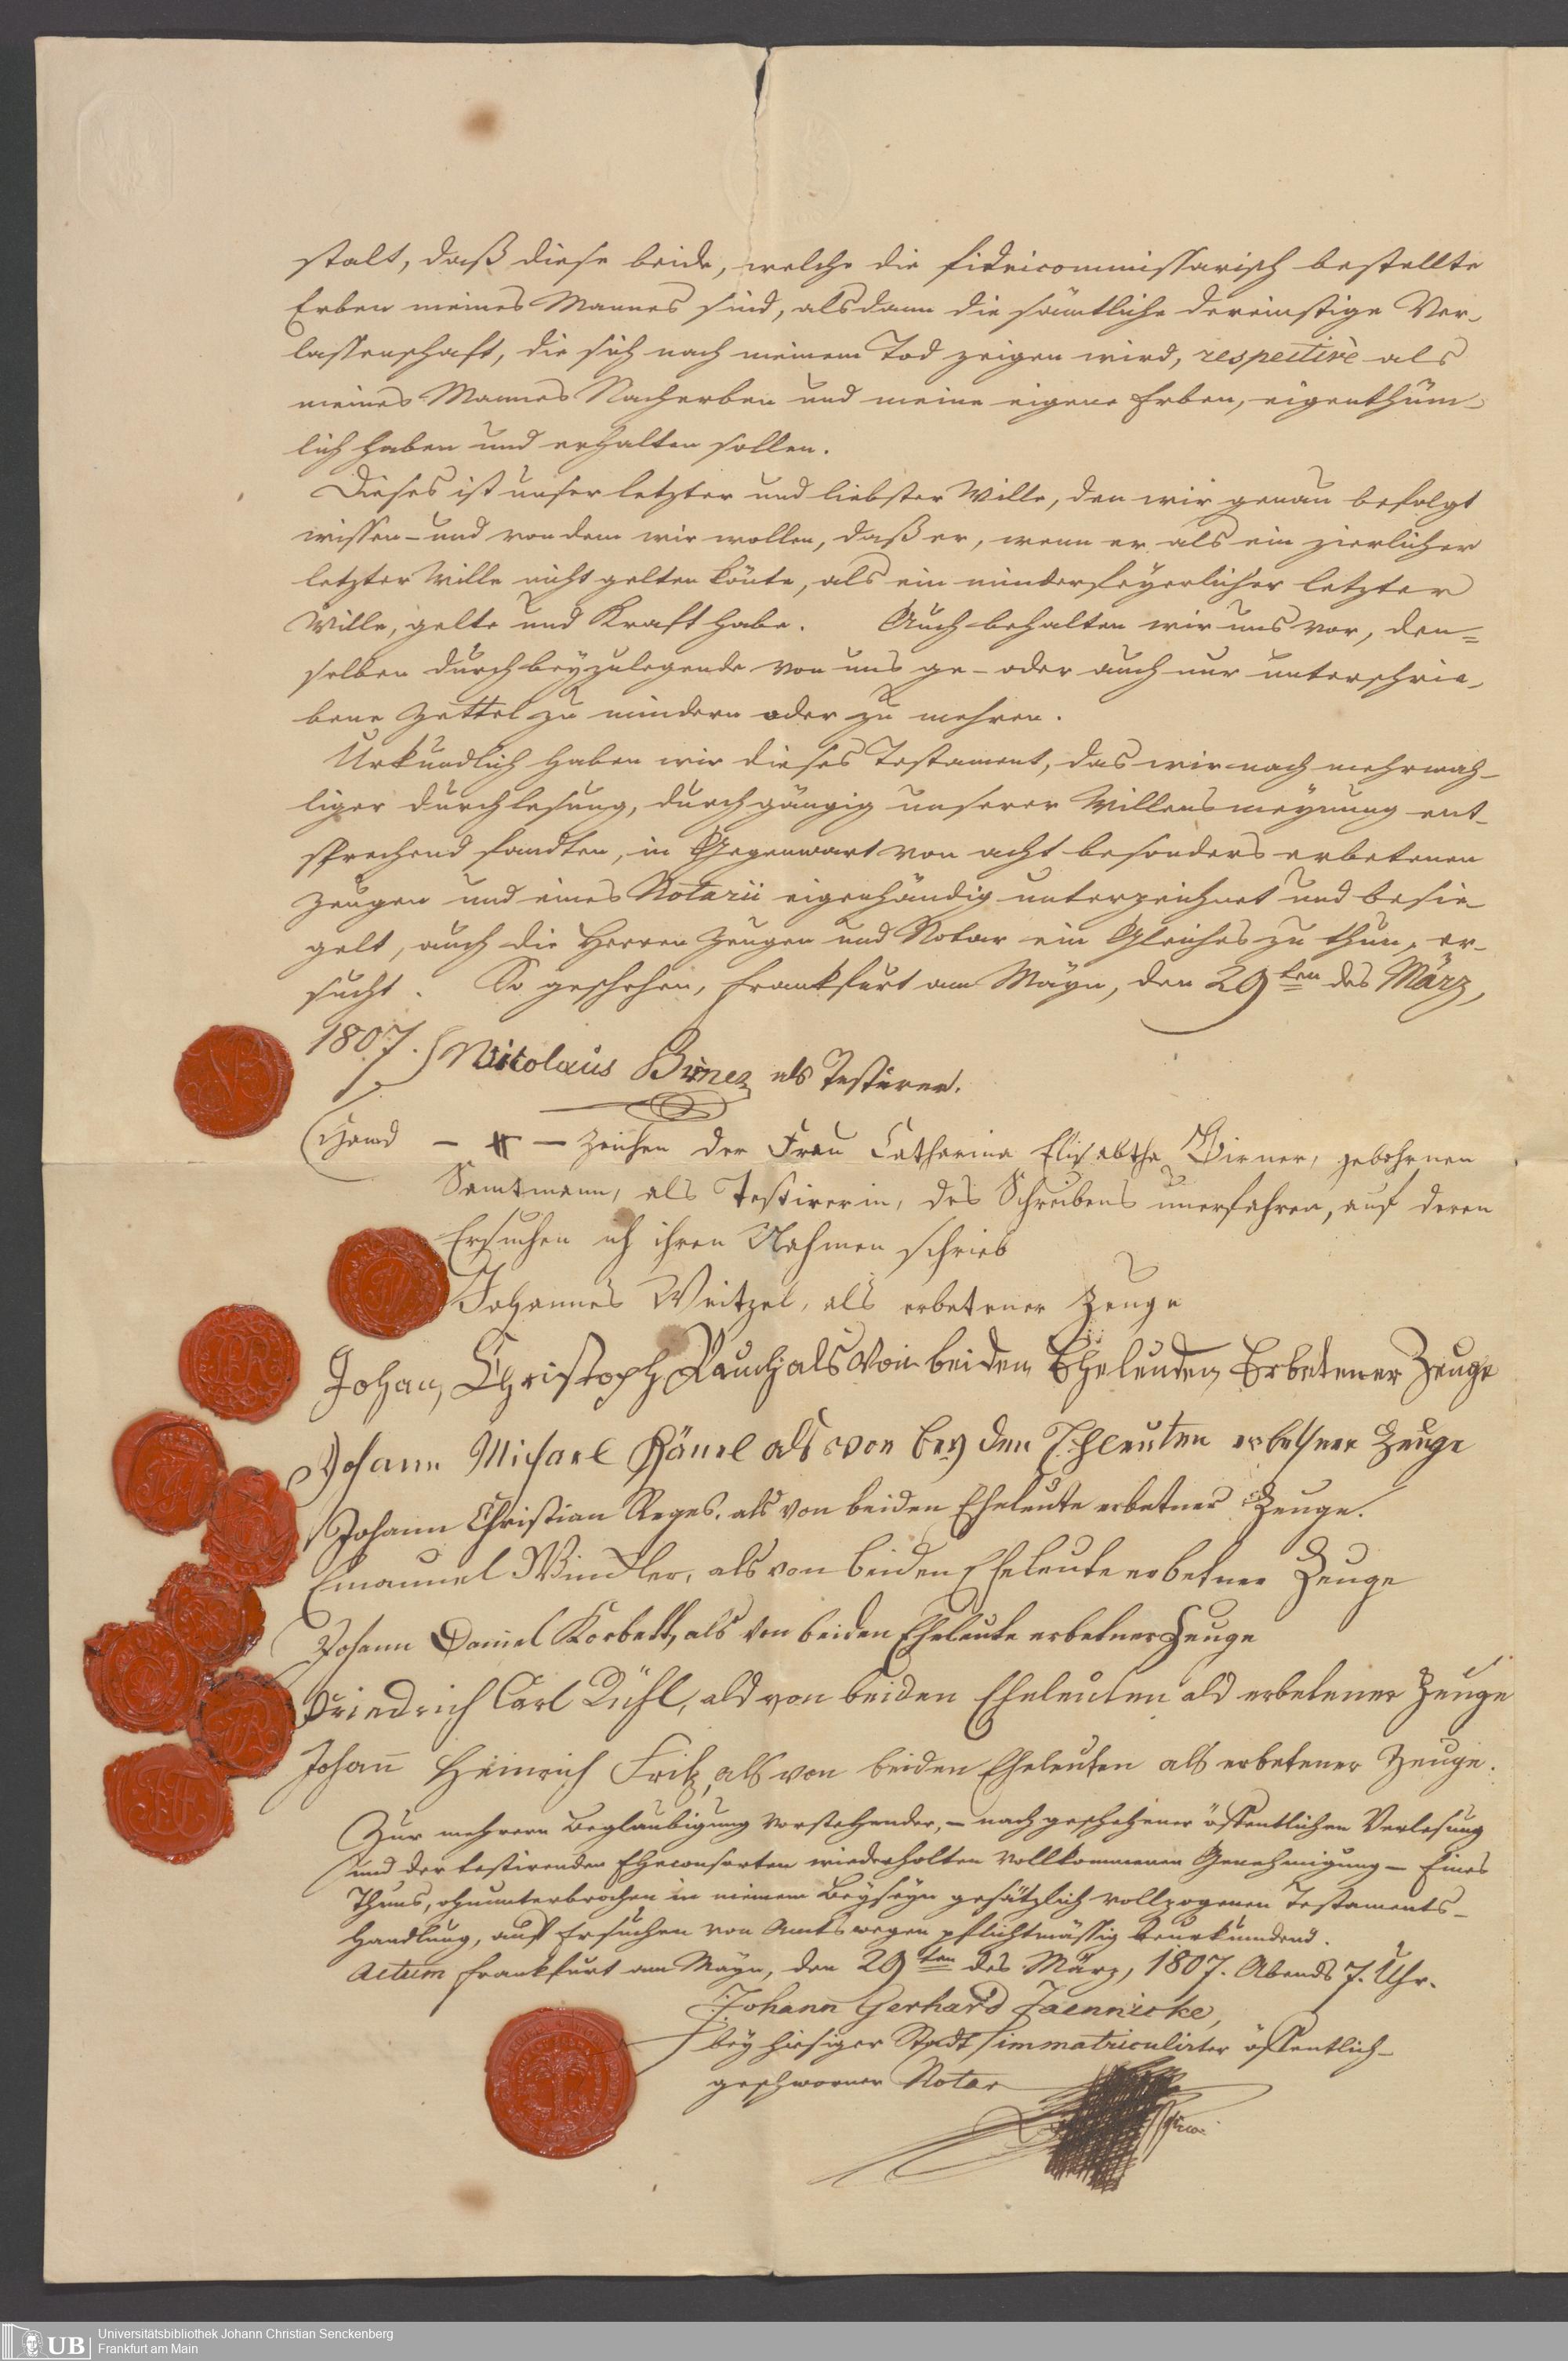 stalt, daß diese beide, welche die fideicommissarisch bestellte
Erben meines Mannes sind, alsdann die sämtliche dereinstige Ver-
lassenschaft, die sich nach meinem Tod zeigen wird, respective als
meines Mannes Nacherben und meine eigene Erben, eigenthüm-
lich haben und erhalten sollen.
Dieses ist unser letzter und liebster Wille, den wir genau befolgt
wissen - und von dem wir wollen, daß er, wenn er als ein zierlicher
letzter Wille nicht gelten könte, als ein minderfeyerlicher letzter
Wille, gelte und Kraft habe. Auch behalten wir uns vor, den=
selben durch beyzulegende von uns ge- oder auch nur unterschrie-
bene Zettel zu mindern oder zu mehren.
Urkundlich haben wir dieses Testament, das wir nach mehrmah-
liger Durchlesung, durchgängig unserer Willensmeynung ent-
sprechend fandten, in Gegenwart von acht besonders erbetenen
Zeugen und eines Notarii eigenhändig unterzeichnet und besie
gelt, auch die Herren Zeugen und Notar ein Gleiches zu thun, er-
sucht. So geschehen, Frankfurt am Mayn, den 29ten des März,
1807. Nicolaus als Testirer.
Hand - # - Zeichen der Frau Catharina Elisabetha Birner, gebohrnen
Samtmann, als Testirerin, des Schreibens unerfahren, auf deren
Ersuchen ich ihren Nahmen schrieb
Johannes Weitzel, als erbetener Zeuge
Johan Christoph Rauch als von beiden Eheleuden Erbetener Zeuge
Johann Michael als von beyden Eheleuten erbethner Zeuge
Johann Christian Reges, als von beiden Eheleute erbetner Zeuge.
Emanuel Windler, als von beiden Eheleute erbetner Zeuge
Johann Daniel Korbett, als von beiden Eheleute erbetner Zeuge
Friedrich Carl Rühl, als von beiden Eheleuten als erbetener Zeuge
Johann Heinrich Fritz, als von beiden Eheleuten als erbetener Zeuge.
Zur mehrern Beglaubigung vorstehender, - nach geschehener öffentlichen Verlesung
und der testirenden Eheconsorten wiederholten vollkommenen Genehmigung - Eines
Thuns, ohnunterbrochen in meinem Beyseyn gesätzlich vollzogenen Testaments-
Handlung, auf Ersuchen von Amtswegen pflichtmässig beurkundend.
Actum Frankfurt am Mayn, den 29ten des März, 1807. Abends 7. Uhr.
Johann Gerhard Jaennicke,
bey hiesiger Stadt immatriculirter öffentlich-
geschworner Notar
UB Universitätsbibliothek Johann Christian Senckenberg
Frankfurt am Main